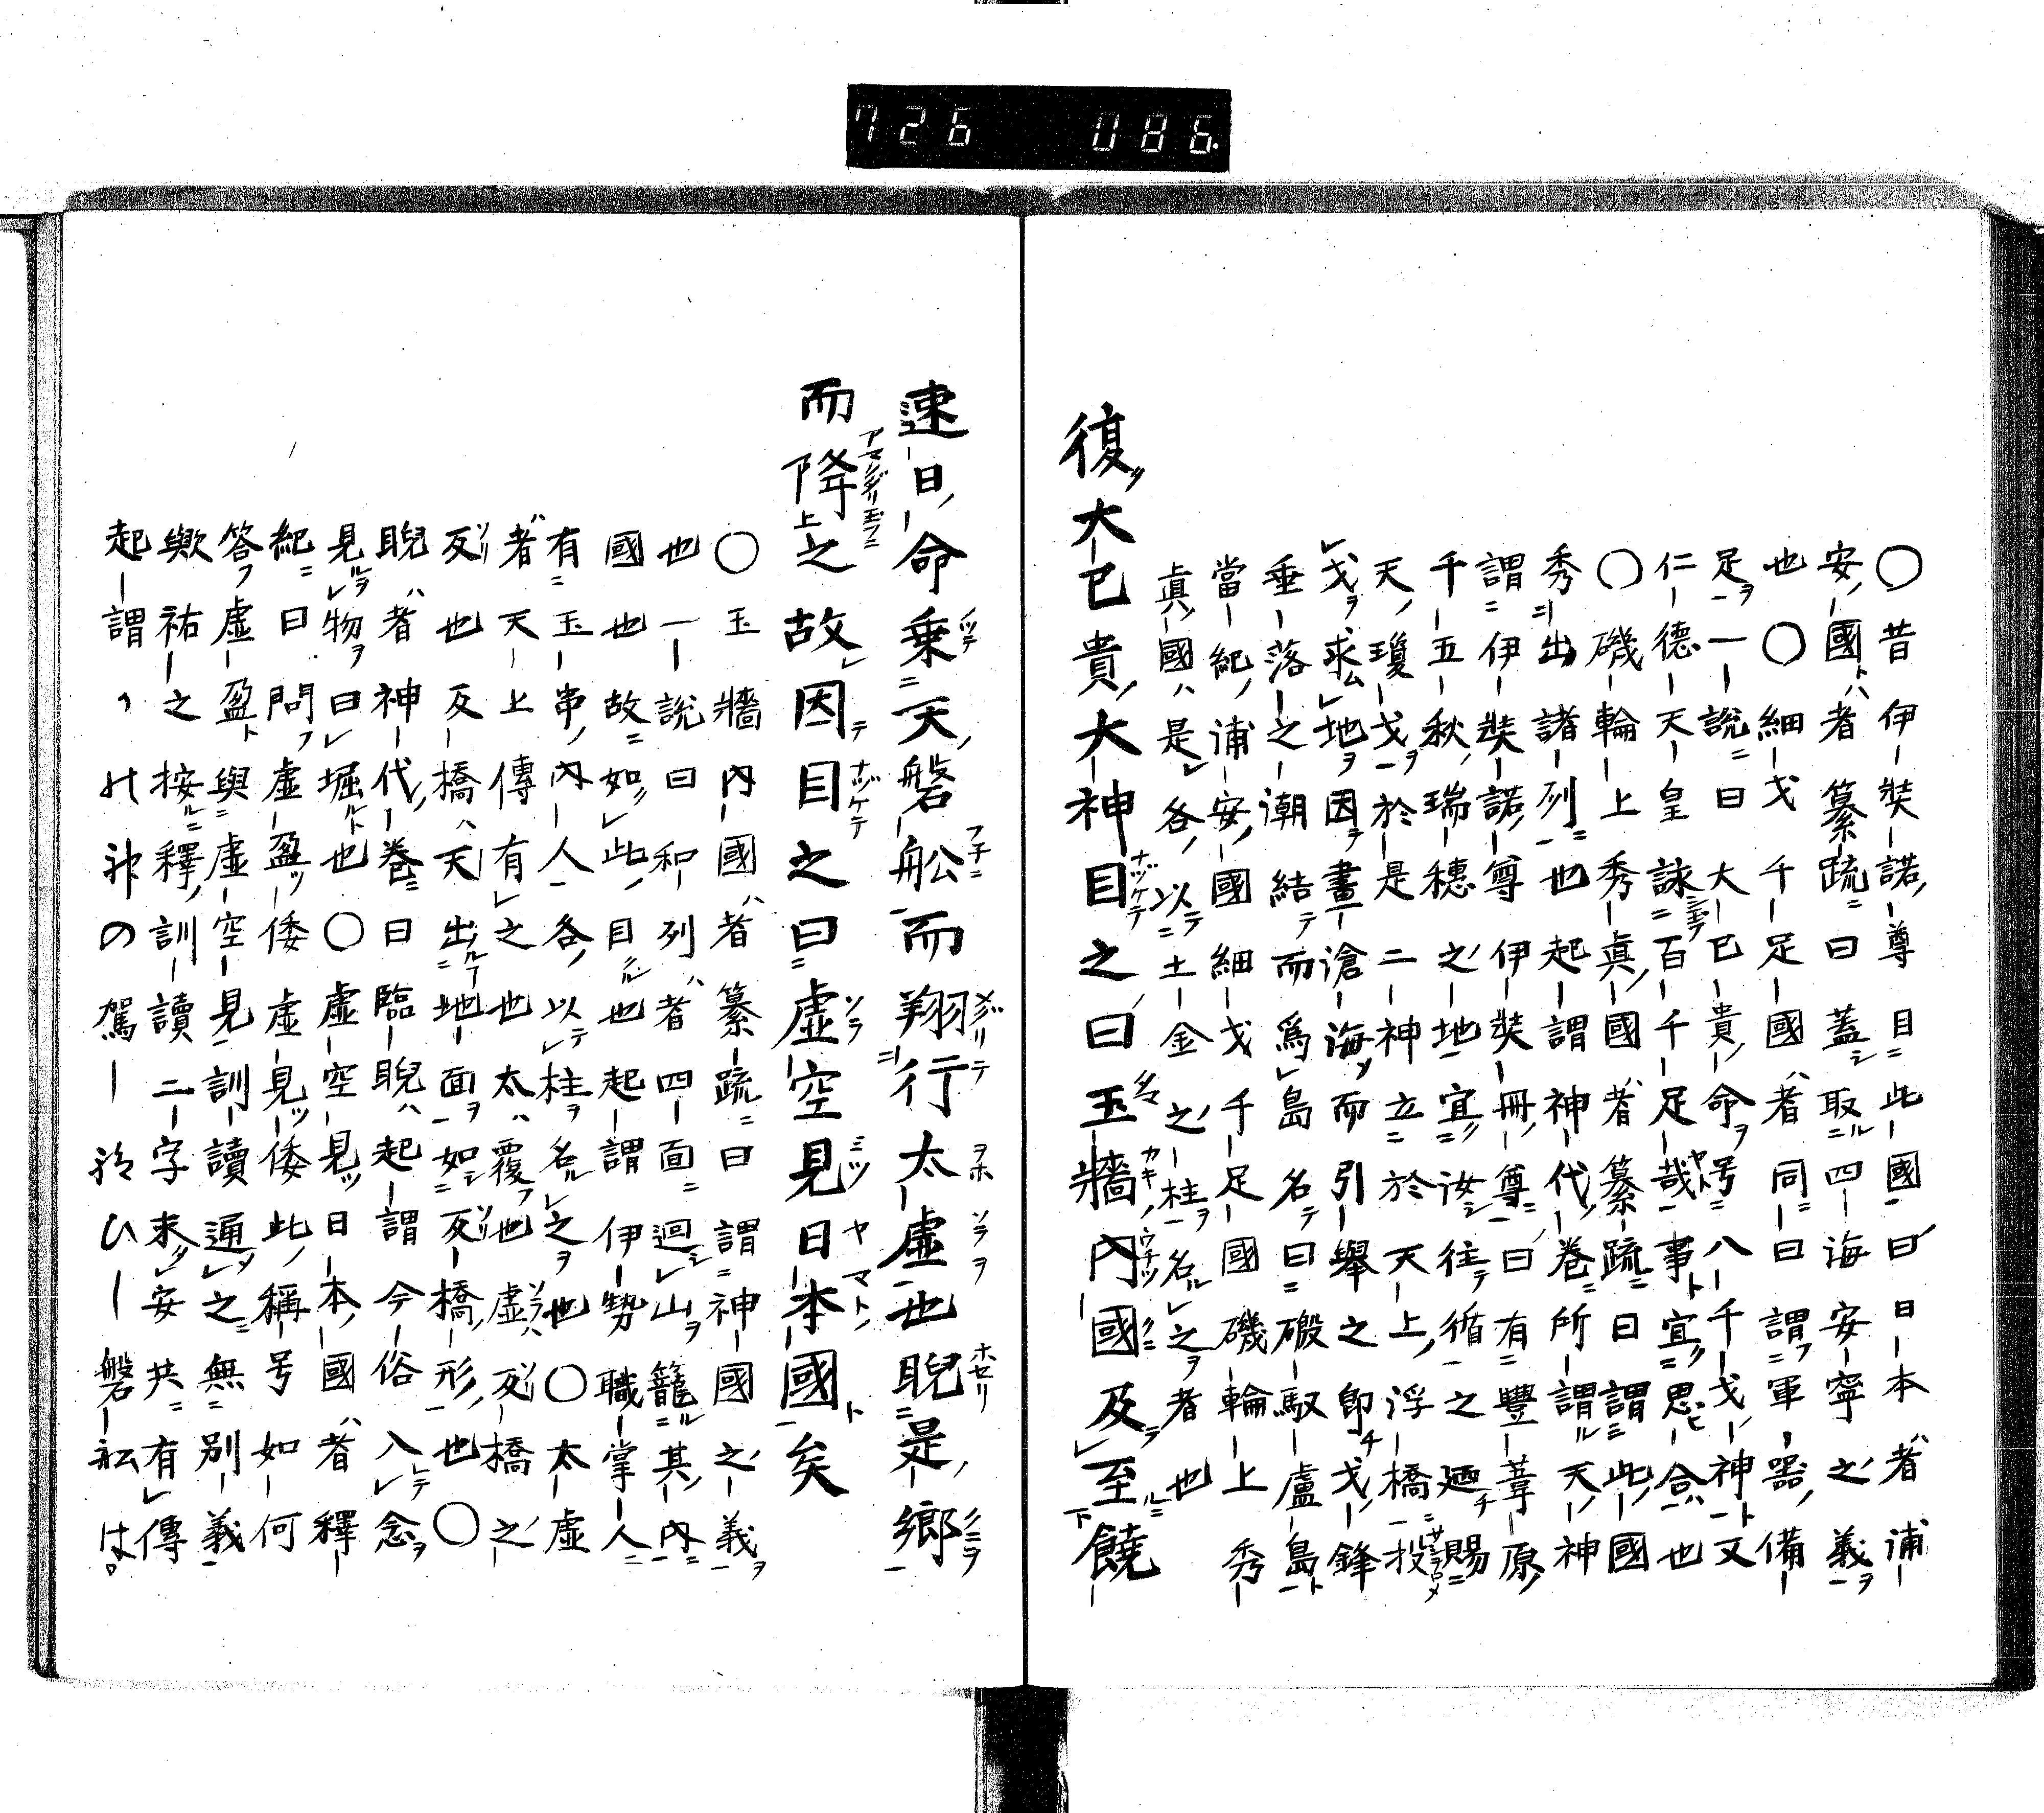 726 086
〇昔伊弉諾尊目此國曰日本者浦
安國者纂疏曰蓋取四海安寧之義
也〇細戈千足國者同曰謂軍器備
足一說曰大己貴命号八千戈神又
仁德天皇詠百千足哉事宜思合也
〇磯輪上秀眞國者纂疏曰謂此國
秀出諸列也起謂神代卷所謂天神
謂伊弉諾尊伊弉冊尊曰有豐葦原
千五秋瑞穗之地宜汝往循之廼賜
天瓊戈於是二神立於天上浮橋投
戈求地因畫滄海而引舉之卽戈鋒
垂落之潮結而爲島名曰磤馭盧島
當紀浦安國細戈千足國磯輪上秀
眞國是各以土金之柱名之者也
復大已貴大神目之曰玉牆內國及至饒
速日命乗天磐舩而翔行太虛也睨是鄉
而降之故因目之曰虛空見日本國矣
〇玉牆內國者纂疏曰謂神國之義
也一說曰和列者四面迴山籠其內
國也故如此目也起謂伊勢職掌人
有玉串內人各以柱名之也〇太虛
者天上傳有之也太覆也虛歹橋之
反也反橋天出地面如反橋形也〇
睨者神代卷曰臨睨起謂今俗入念
見物曰堀也〇虛空見日本國者釋
紀曰問虛盈倭虛見倭此稱号如何
答虛盈與虛空見訓讀通之無別義
歟祐之按釋訓讀二字來安共有傳
起謂